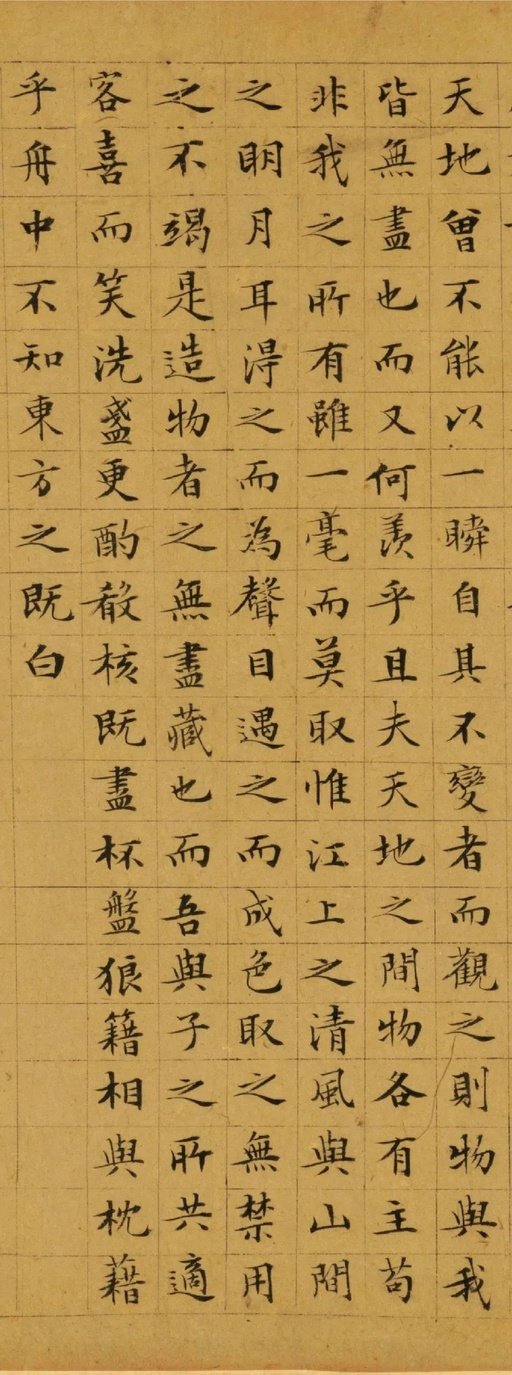 天地曾不能以一瞬自其不變者而觀之則物與我
皆無盡也而又何羨乎且夫天地之間物各有主苟
非我之所有雖一毫而莫取惟江上之清風與山間
之明月耳淂之而為聲目遇之而成色取之無禁用
之不竭是造物者之無盡藏也而吾與子之所共適
客喜而笑洗盞更酌殽核既盡杯盤狼籍相與枕藉
乎舟中不知東方之既白